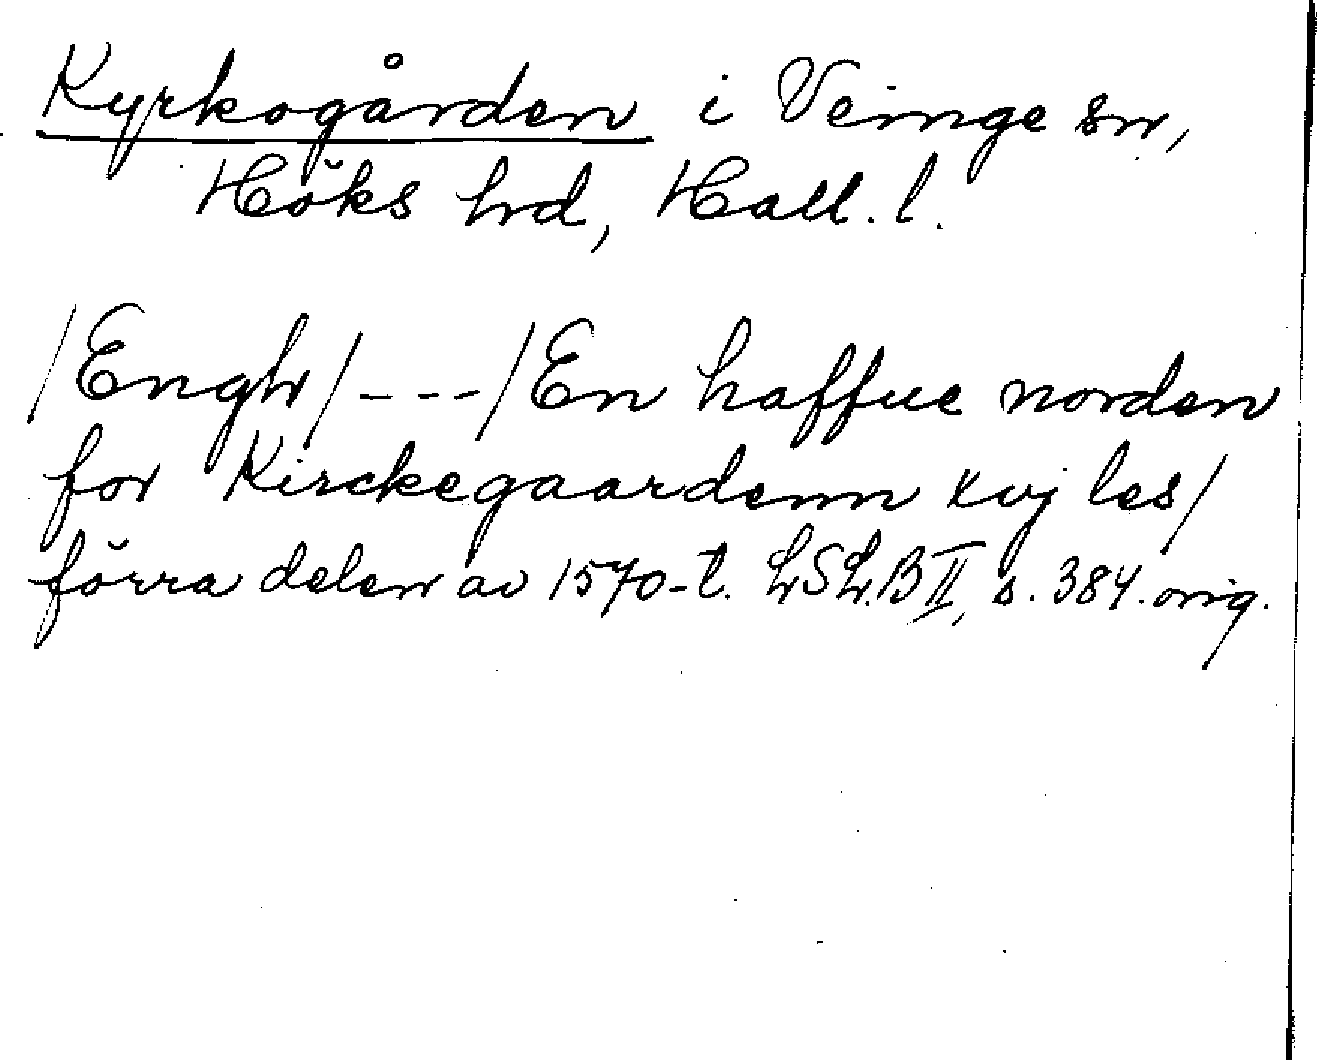 Kyrkogården i Veinge sn,
Höks hrd, Hall. l.
/Engh/---/En haffue norden
for Kirckegaardenn xvj les/
förra delen av 1570-t. LSL.B II, s. 384. orig.